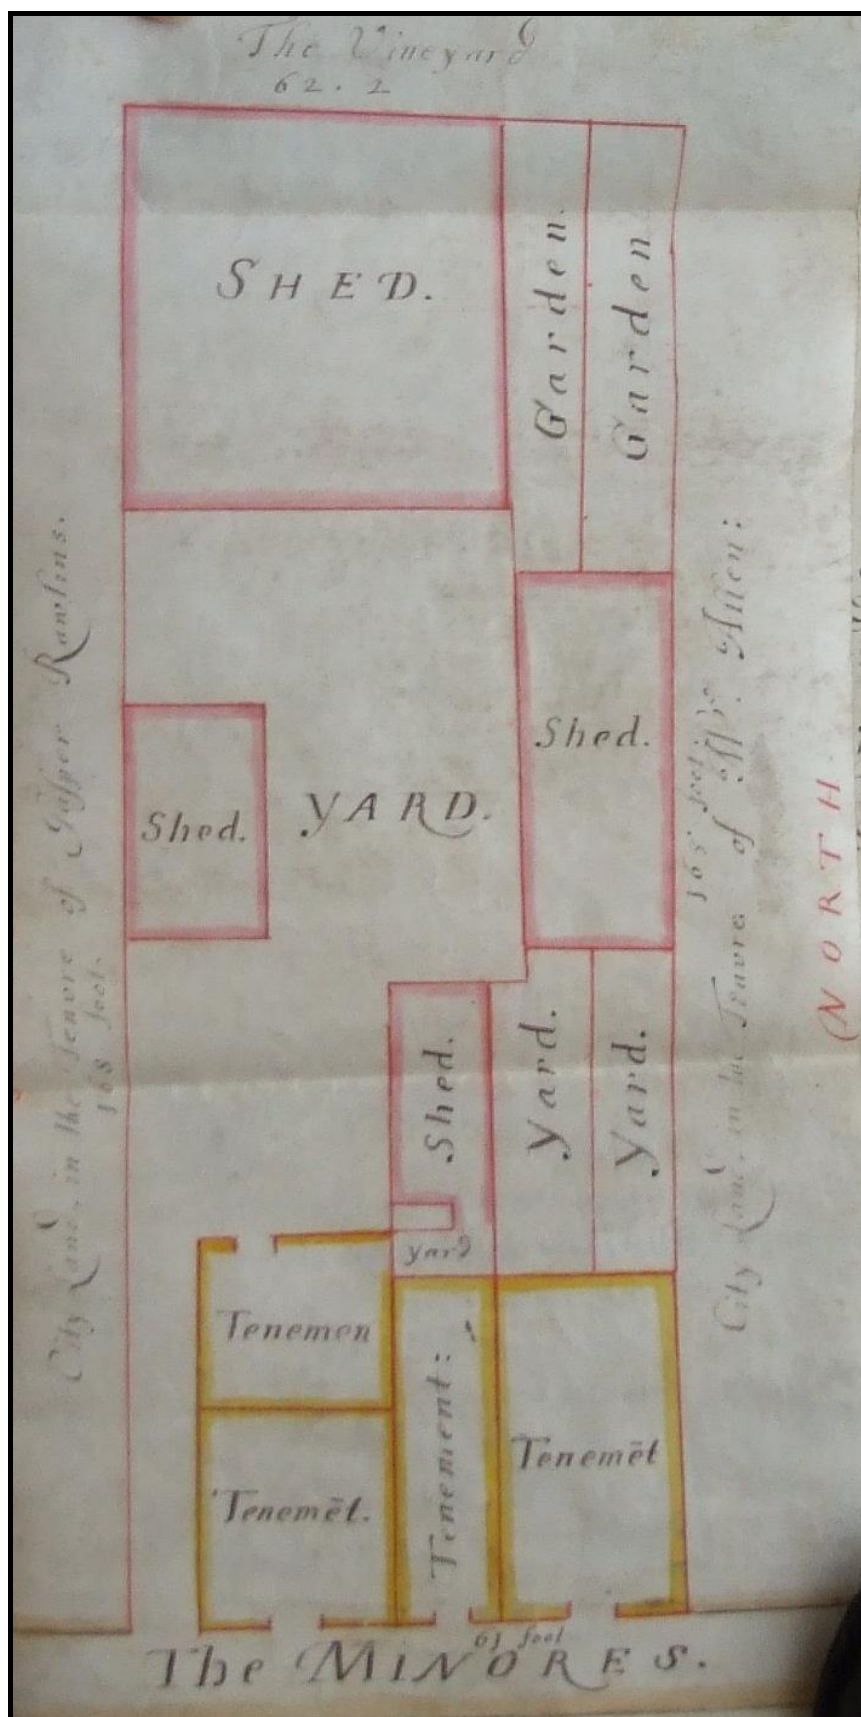 The Vineyard
62. 2
SHED.
Garden.
Garden
City Land, in the Tenure of Jasper Rawlins.
168 feet.
Shed.
YARD.
Shed.
165 feet.
City Land, in the Tenure of Allen:
NORTH
Shed.
Yard.
Yard.
yard
Tenemen
Tenemēt.
Tenement:
Tenemēt
61 feet
The MINORES.